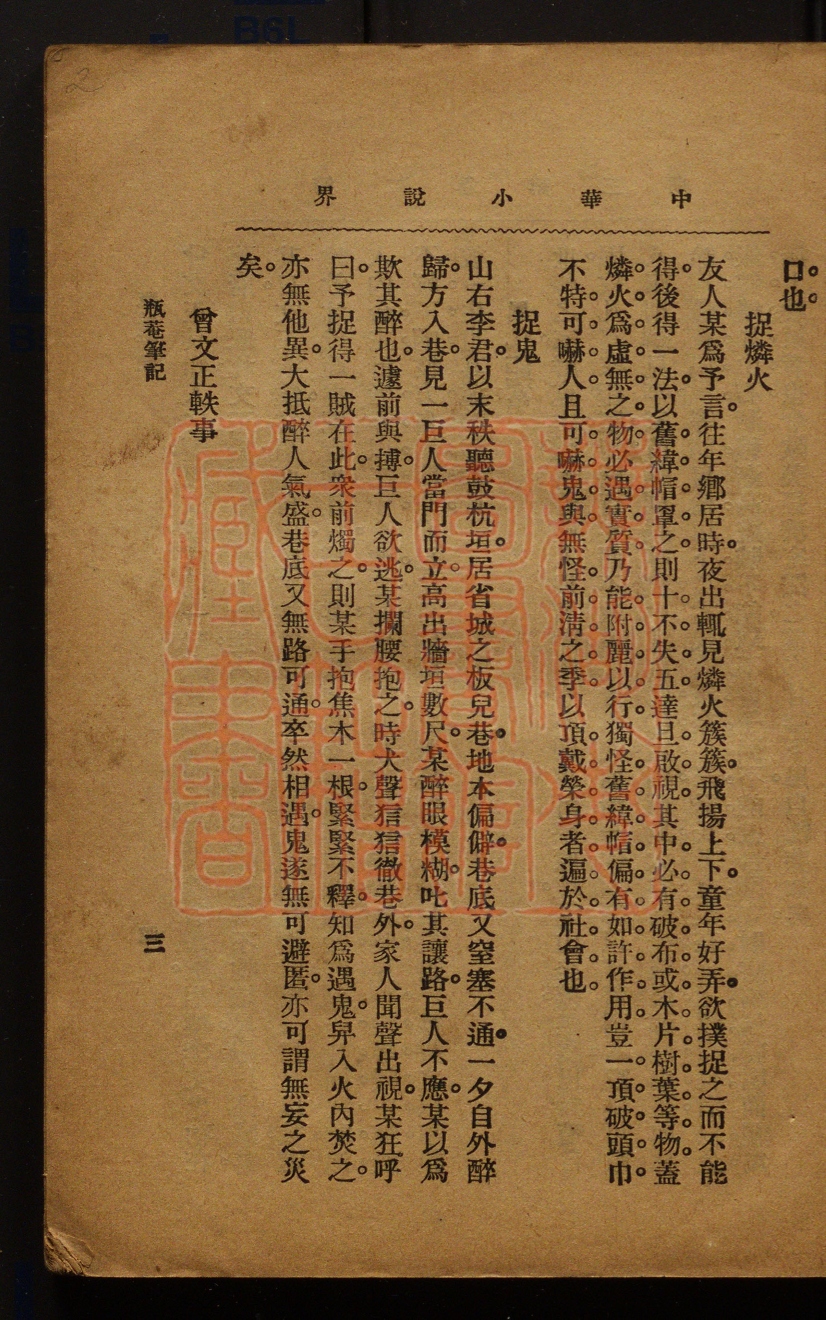 中華小說界
口也。
捉燐火
友人某爲予言。往年鄉居時。夜出輒見燐火簇簇。飛揚上下。童年好弄。欲撲捉之而不能
得。後得一法。以舊緯帽罩之。則十不失五。達旦啟視。其中必有破布或木片樹葉等物。蓋
燐火爲虛無之物。必遇實質。乃能附麗以行。獨怪舊緯帽偏有如許作用。豈一頂破頭巾。
不特可嚇人。且可嚇鬼與。無怪前淸之季。以頂戴榮身者。遍於社會也。
捉鬼
山右李君。以末秩聽鼓杭垣。居省城之板兒巷。地本偏僻。巷底又窒塞不通。一夕自外醉
歸。方入巷。見一巨人當門而立。高出牆垣數尺。某醉眼模糊。叱其讓路。巨人不應。某以爲
欺其醉也。遽前與搏。巨人欲逃。某攔腰抱之。時犬聲狺狺徹巷外。家人聞聲出視。某狂呼
曰。予捉得一賊在此。衆前燭之。則某手抱焦木一根。緊緊不釋。知爲遇鬼。舁入火內焚之。
亦無他異。大抵醉人氣盛。巷底又無路可通。卒然相遇。鬼遂無可避匿。亦可謂無妄之災
矣。
曾文正軼事
瓶菴筆記
三
2